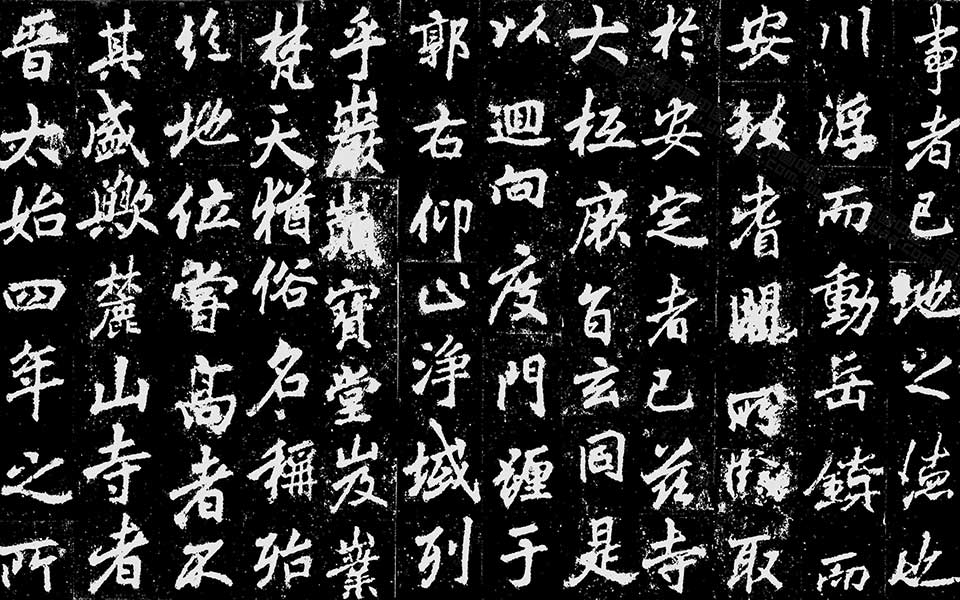 事者已地之德也
川浮而動岳鎮而
安故耆闍取
於安定者已茲寺
大抵厥旨玄同是
以迴向度門躔于
郭右仰止淨域列
乎巖巔寶堂岌嶪
梵天猶俗名稱殆
絕地位嘗高者不
其盛歟麓山寺者
晉太始四年之所